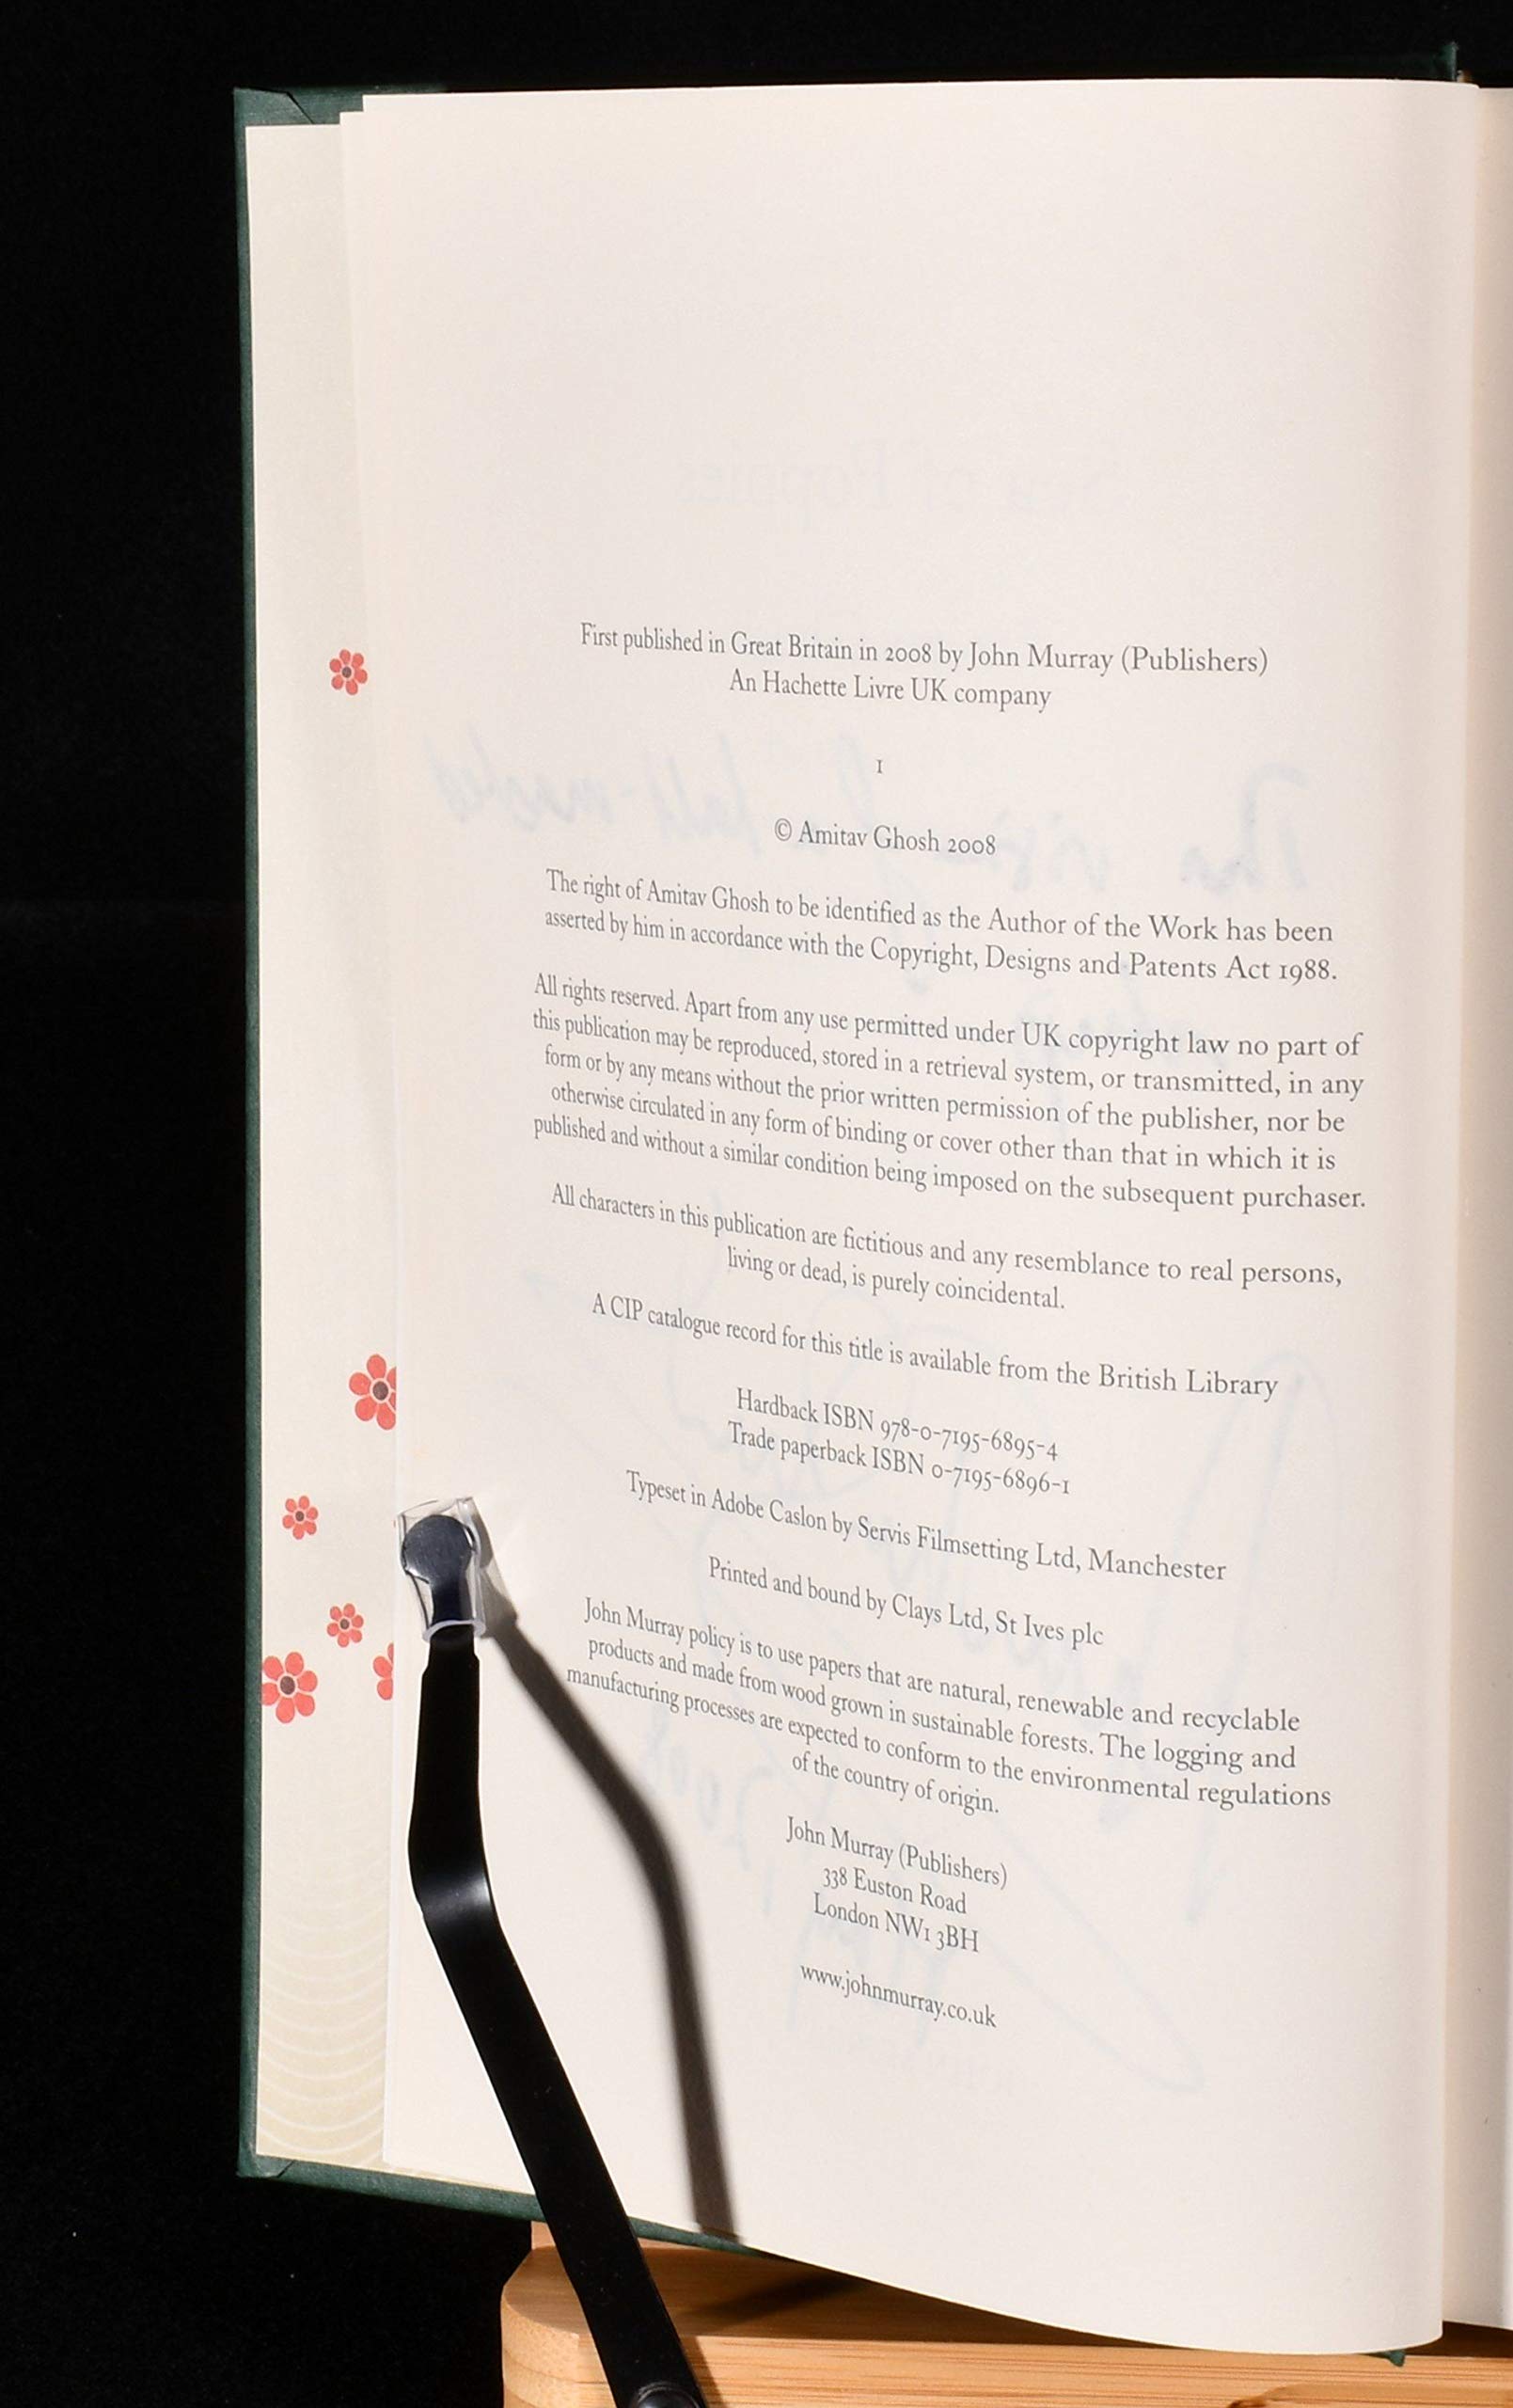 First published in Great Britain in 2008 by John Murray (Publishers)
An Hachette Livre UK company
1
© Amitav Ghosh 2008
The right of Amitav Ghosh to be identified as the Author of the Work has been
asserted by him in accordance with the Copyright, Designs and Patents Act 1988.
All rights reserved. Apart from any use permitted under UK copyright law no part of
this publication may be reproduced, stored in a retrieval system, or transmitted, in any
form or by any means without the prior written permission of the publisher, nor be
otherwise circulated in any form of binding or cover other than that in which it is
published and without a similar condition being imposed on the subsequent purchaser.
All characters in this publication are fictitious and any resemblance to real persons,
living or dead, is purely coincidental.
A CIP catalogue record for this title is available from the British Library
Hardback ISBN 978-0-7195-6895-4
Trade paperback ISBN 0-7195-6896-1
Typeset in Adobe Caslon by Servis Filmsetting Ltd, Manchester
Printed and bound by Clays Ltd, St Ives plc
John Murray policy is to use papers that are natural, renewable and recyclable
products and made from wood grown in sustainable forests. The logging and
manufacturing processes are expected to conform to the environmental regulations
of the country of origin.
John Murray (Publishers)
338 Euston Road
London NW1 3BH
www.johnmurray.co.uk